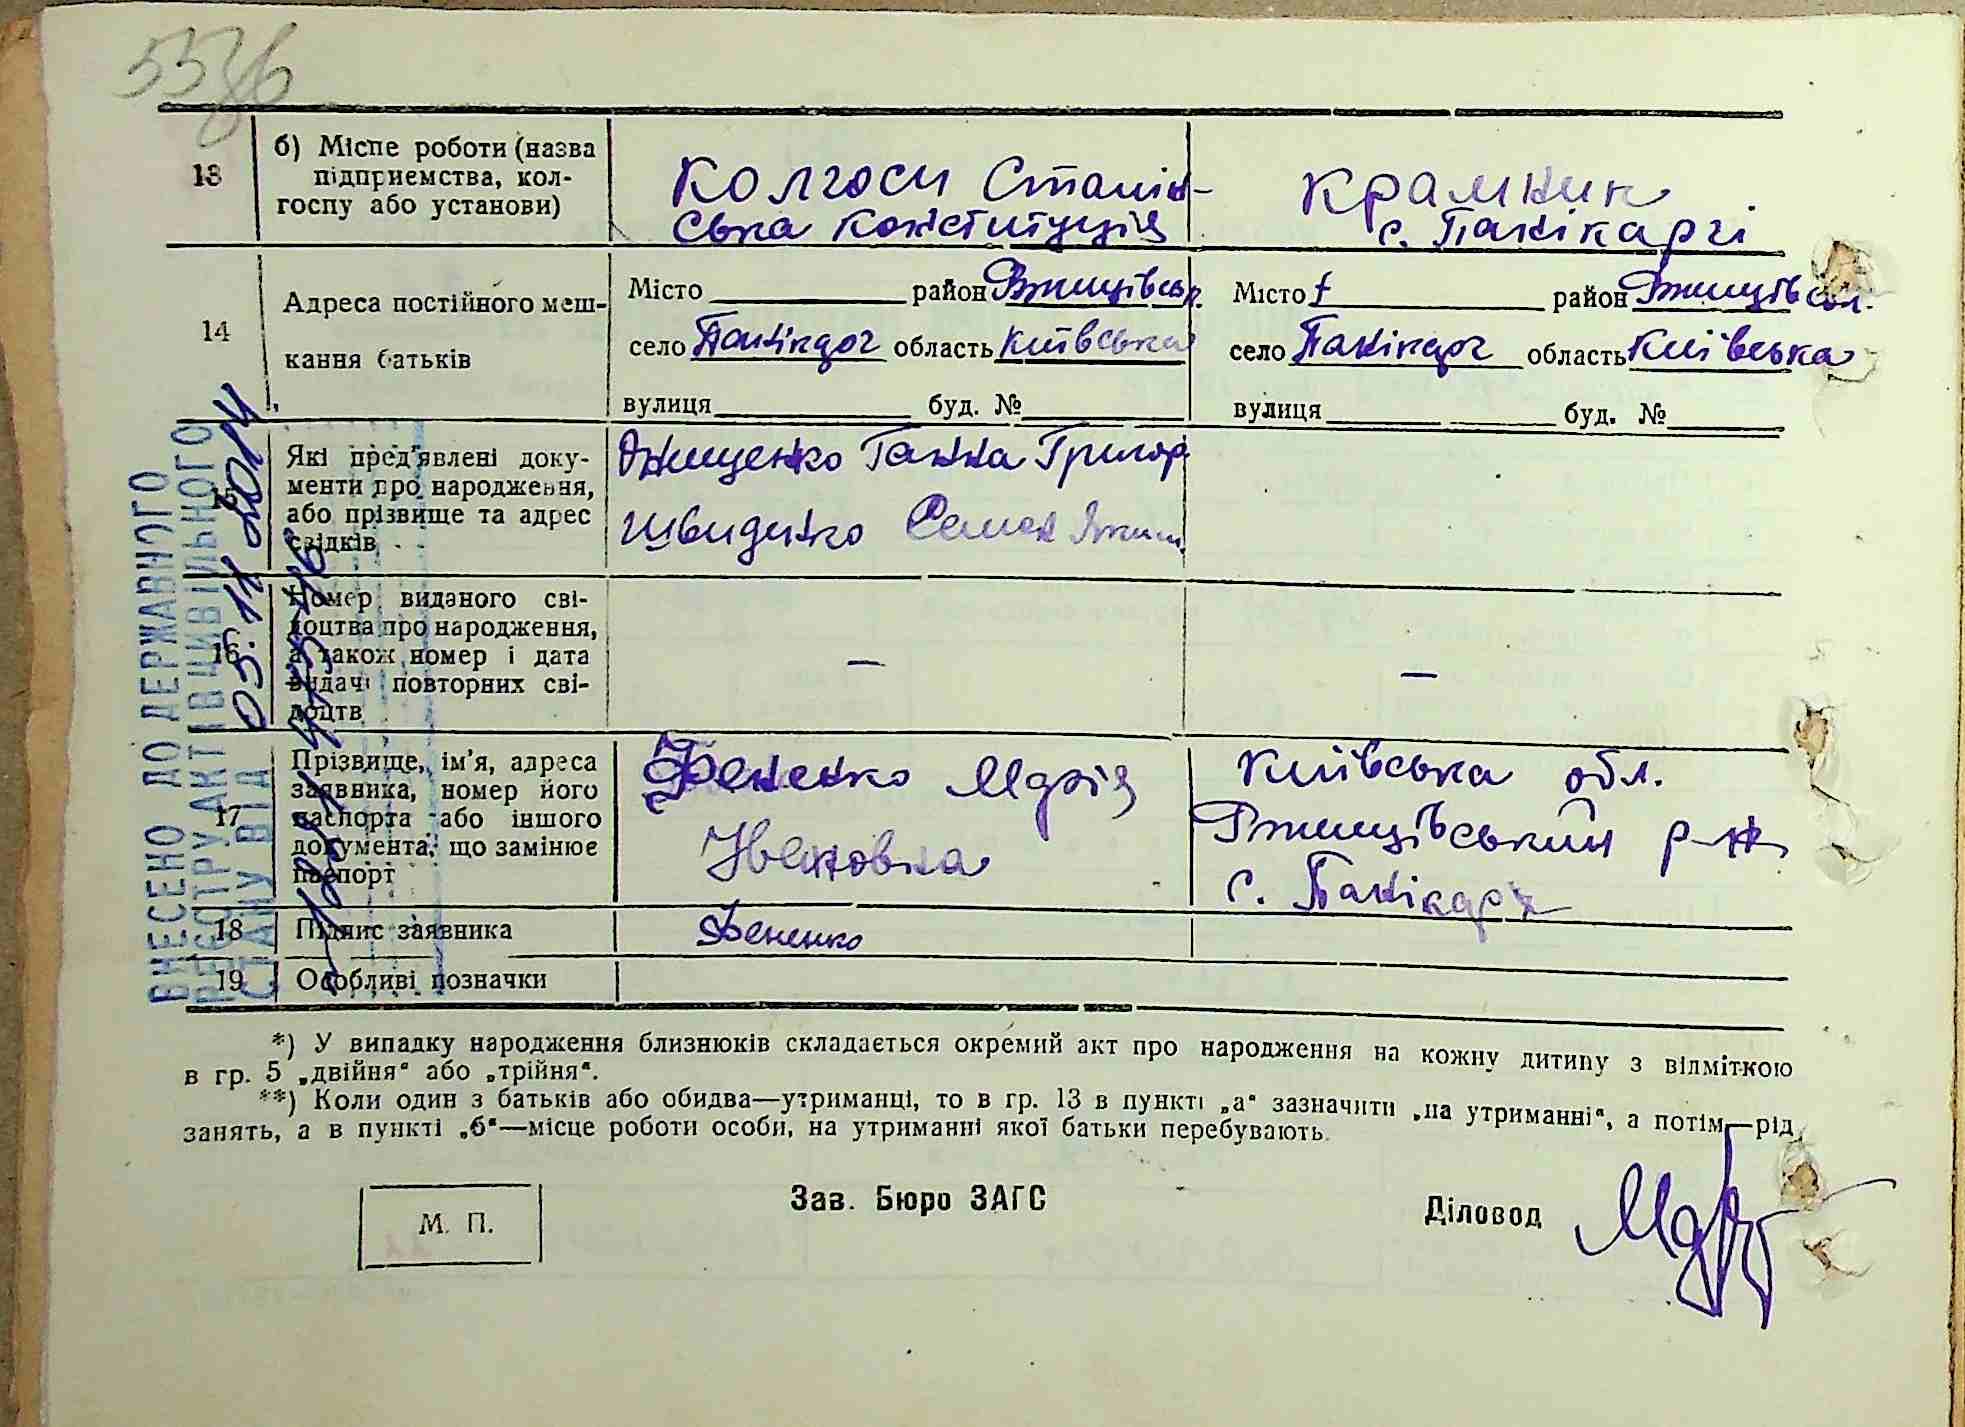 13
б) Місце роботи (назва
підприємства, кол-
госпу або установи)
Колгосп Сталін-
ська Конституція
Крамник
с. Панікаргі
14
Адреса постійного меш-
кання батьків
Місто район Ржищівськ.
село область Київська
вулиця буд. №
Місто район Ржищівськ.
село Панікарг область Київська
вулиця буд. №
Які пред'явлені доку-
менти про народження,
або прізвище та адрес
свідків
Онищенко Ганна Григор
Швиденко Семен Яким
16
Номер виданого сві-
доцтва про народження,
а також номер і дата
видачі повторних сві-
доцтв
—
—
17
Прізвище, ім'я, адреса
заявника, номер його
паспорта або іншого
документа, що замінює
паспорт
Фененко Марія
Ивановна
Київська обл.
Ржищівський р-н
с. Панікарг
18
Підпис заявника
Фененко
19
Особливі позначки
*) У випадку народження близнюків складається окремий акт про народження на кожну дитину з відміткою
в гр. 5 „двійня" або „трійня".
**) Коли один з батьків або обидва—утриманці, то в гр. 13 в пункті „а" зазначити „на утриманні", а потім—рід
занять, а в пункті „б"—місце роботи особи, на утриманні якої батьки перебувають.
М. П.
Зав. Бюро ЗАГС
Діловод
ВНЕСЕНО ДО ДЕРЖАВНОГО
РЕЄСТРУ АКТІВ ЦИВІЛЬНОГО
СТАНУ ВІД 05.11.2014